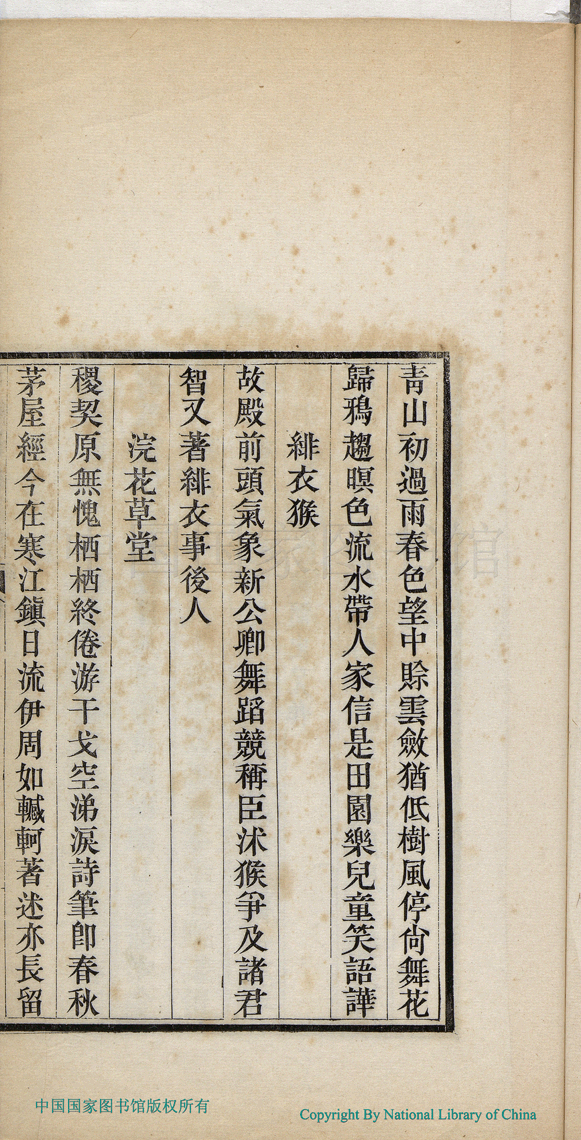 青山初過雨春色望中賒雲斂猶低樹風停尙舞花
歸鴉趨暝色流水帶人家信是田園樂兒童笑語譁
緋衣猴
故殿前頭氣象新公卿舞蹈競稱臣沐猴爭及諸君
智又著緋衣事後人
浣花草堂
稷契原無愧栖栖終倦游干戈空涕淚詩筆卽春秋
茅屋經今在寒江鎭日流伊周如轗軻著述亦長留
中国国家图书馆版权所有
Copyright By National Library of China